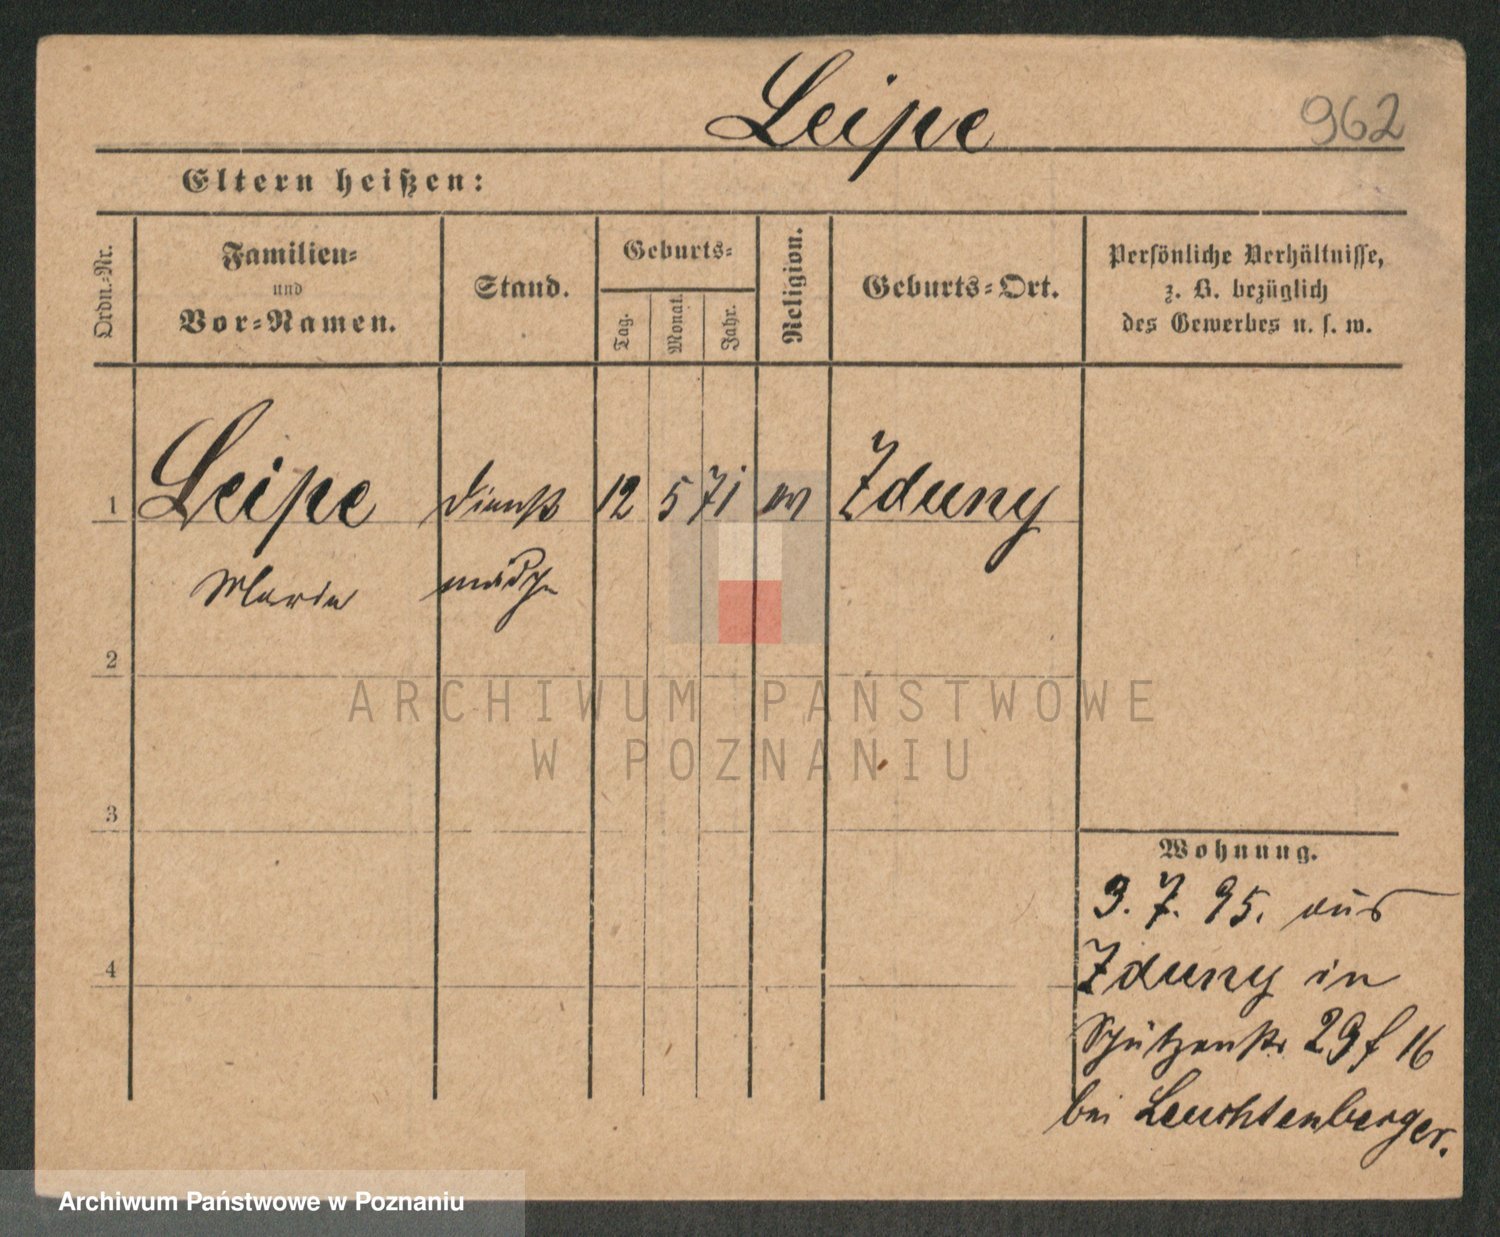 Leipe
962
Eltern heißen:
Ordn.-Nr.
Familien-
und
Vor-Namen.
Stand.
Geburts-
Tag.
Monat.
Jahr.
Religion.
Geburts-Ort.
Persönliche Verhältnisse,
z. B. bezüglich
des Gewerbes u. s. w.
1 Leipe Dienst 12 5 71 Zduny
Maria mädch
2
ARCHIWUM PAŃSTWOWE
W POZNANIU
3
Wohnung.
3. 7. 95. aus
4
Zduny in
Schützenstr 29 f 16
bei Leuchtenberger.
Archiwum Państwowe w Poznaniu